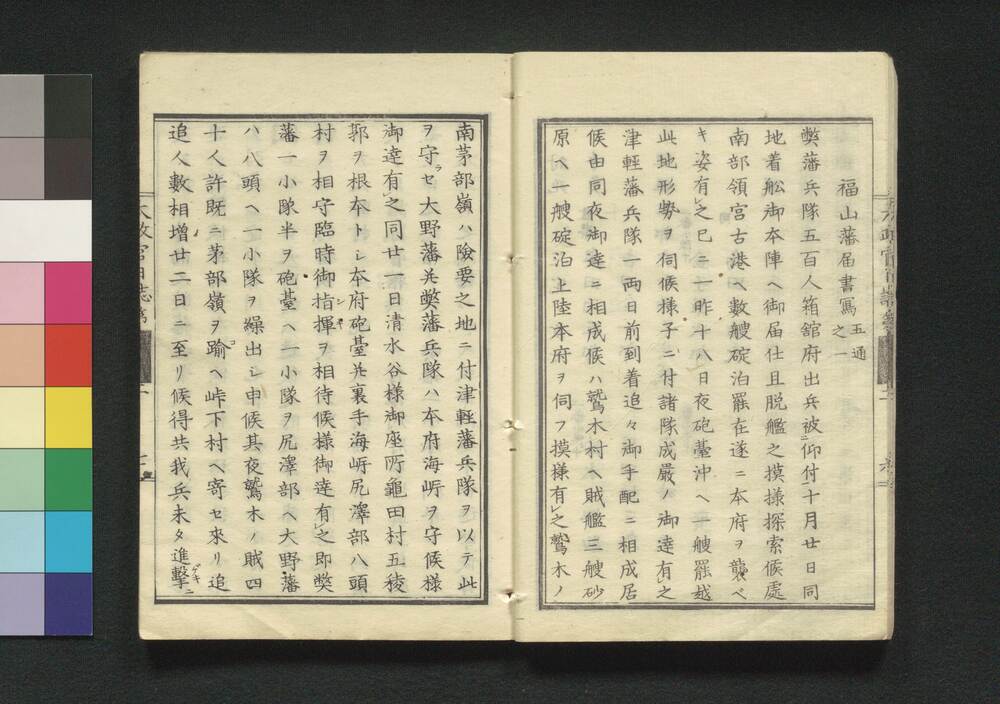 福山藩届書寫五通之一
弊藩兵隊五百人箱舘府出兵被仰付十月廿日同
地着舩御本陣ヘ御届仕且脱艦之摸様探索候處
南部領宮古港ヘ數艘碇泊罷在遂ニ本府ヲ襲ベ
キ姿有之已ニ一昨十八日夜砲臺沖ヘ一艘罷越
此地形勢ヲ伺候様子ニ付諸隊成嚴ノ御達有之
津輕藩兵隊一両日前到着追々御手配ニ相成居
候由同夜御達ニ相成候ハ鷲木村ヘ賊艦三艘砂
原ヘ一艘碇泊上陸本府ヲ伺フ摸様有之鷲木ノ
南茅部嶺ハ險要之地ニ付津輕藩兵隊ヲ以テ此
ヲ守ラセ大野藩幷弊藩兵隊ハ本府海岸ヲ守候様
御達有之同廿一日清水谷様御座所龜田村五稜
郭ヲ根本トシ本府砲臺幷裏手海岸尻澤部八頭
村ヲ相守臨時御指揮ヲ相待候様御達有之即弊
藩一小隊半ヲ砲臺ヘ一小隊ヲ尻澤部ヘ大野藩
ハ八頭ヘ一小隊ヲ繰出シ申候其夜鷲木ノ賊四
十人許既ニ茅部嶺ヲ踰ヘ峠下村ヘ寄セ來リ追
追人數相増廿二日ニ至リ候得共我兵未タ進撃ニ